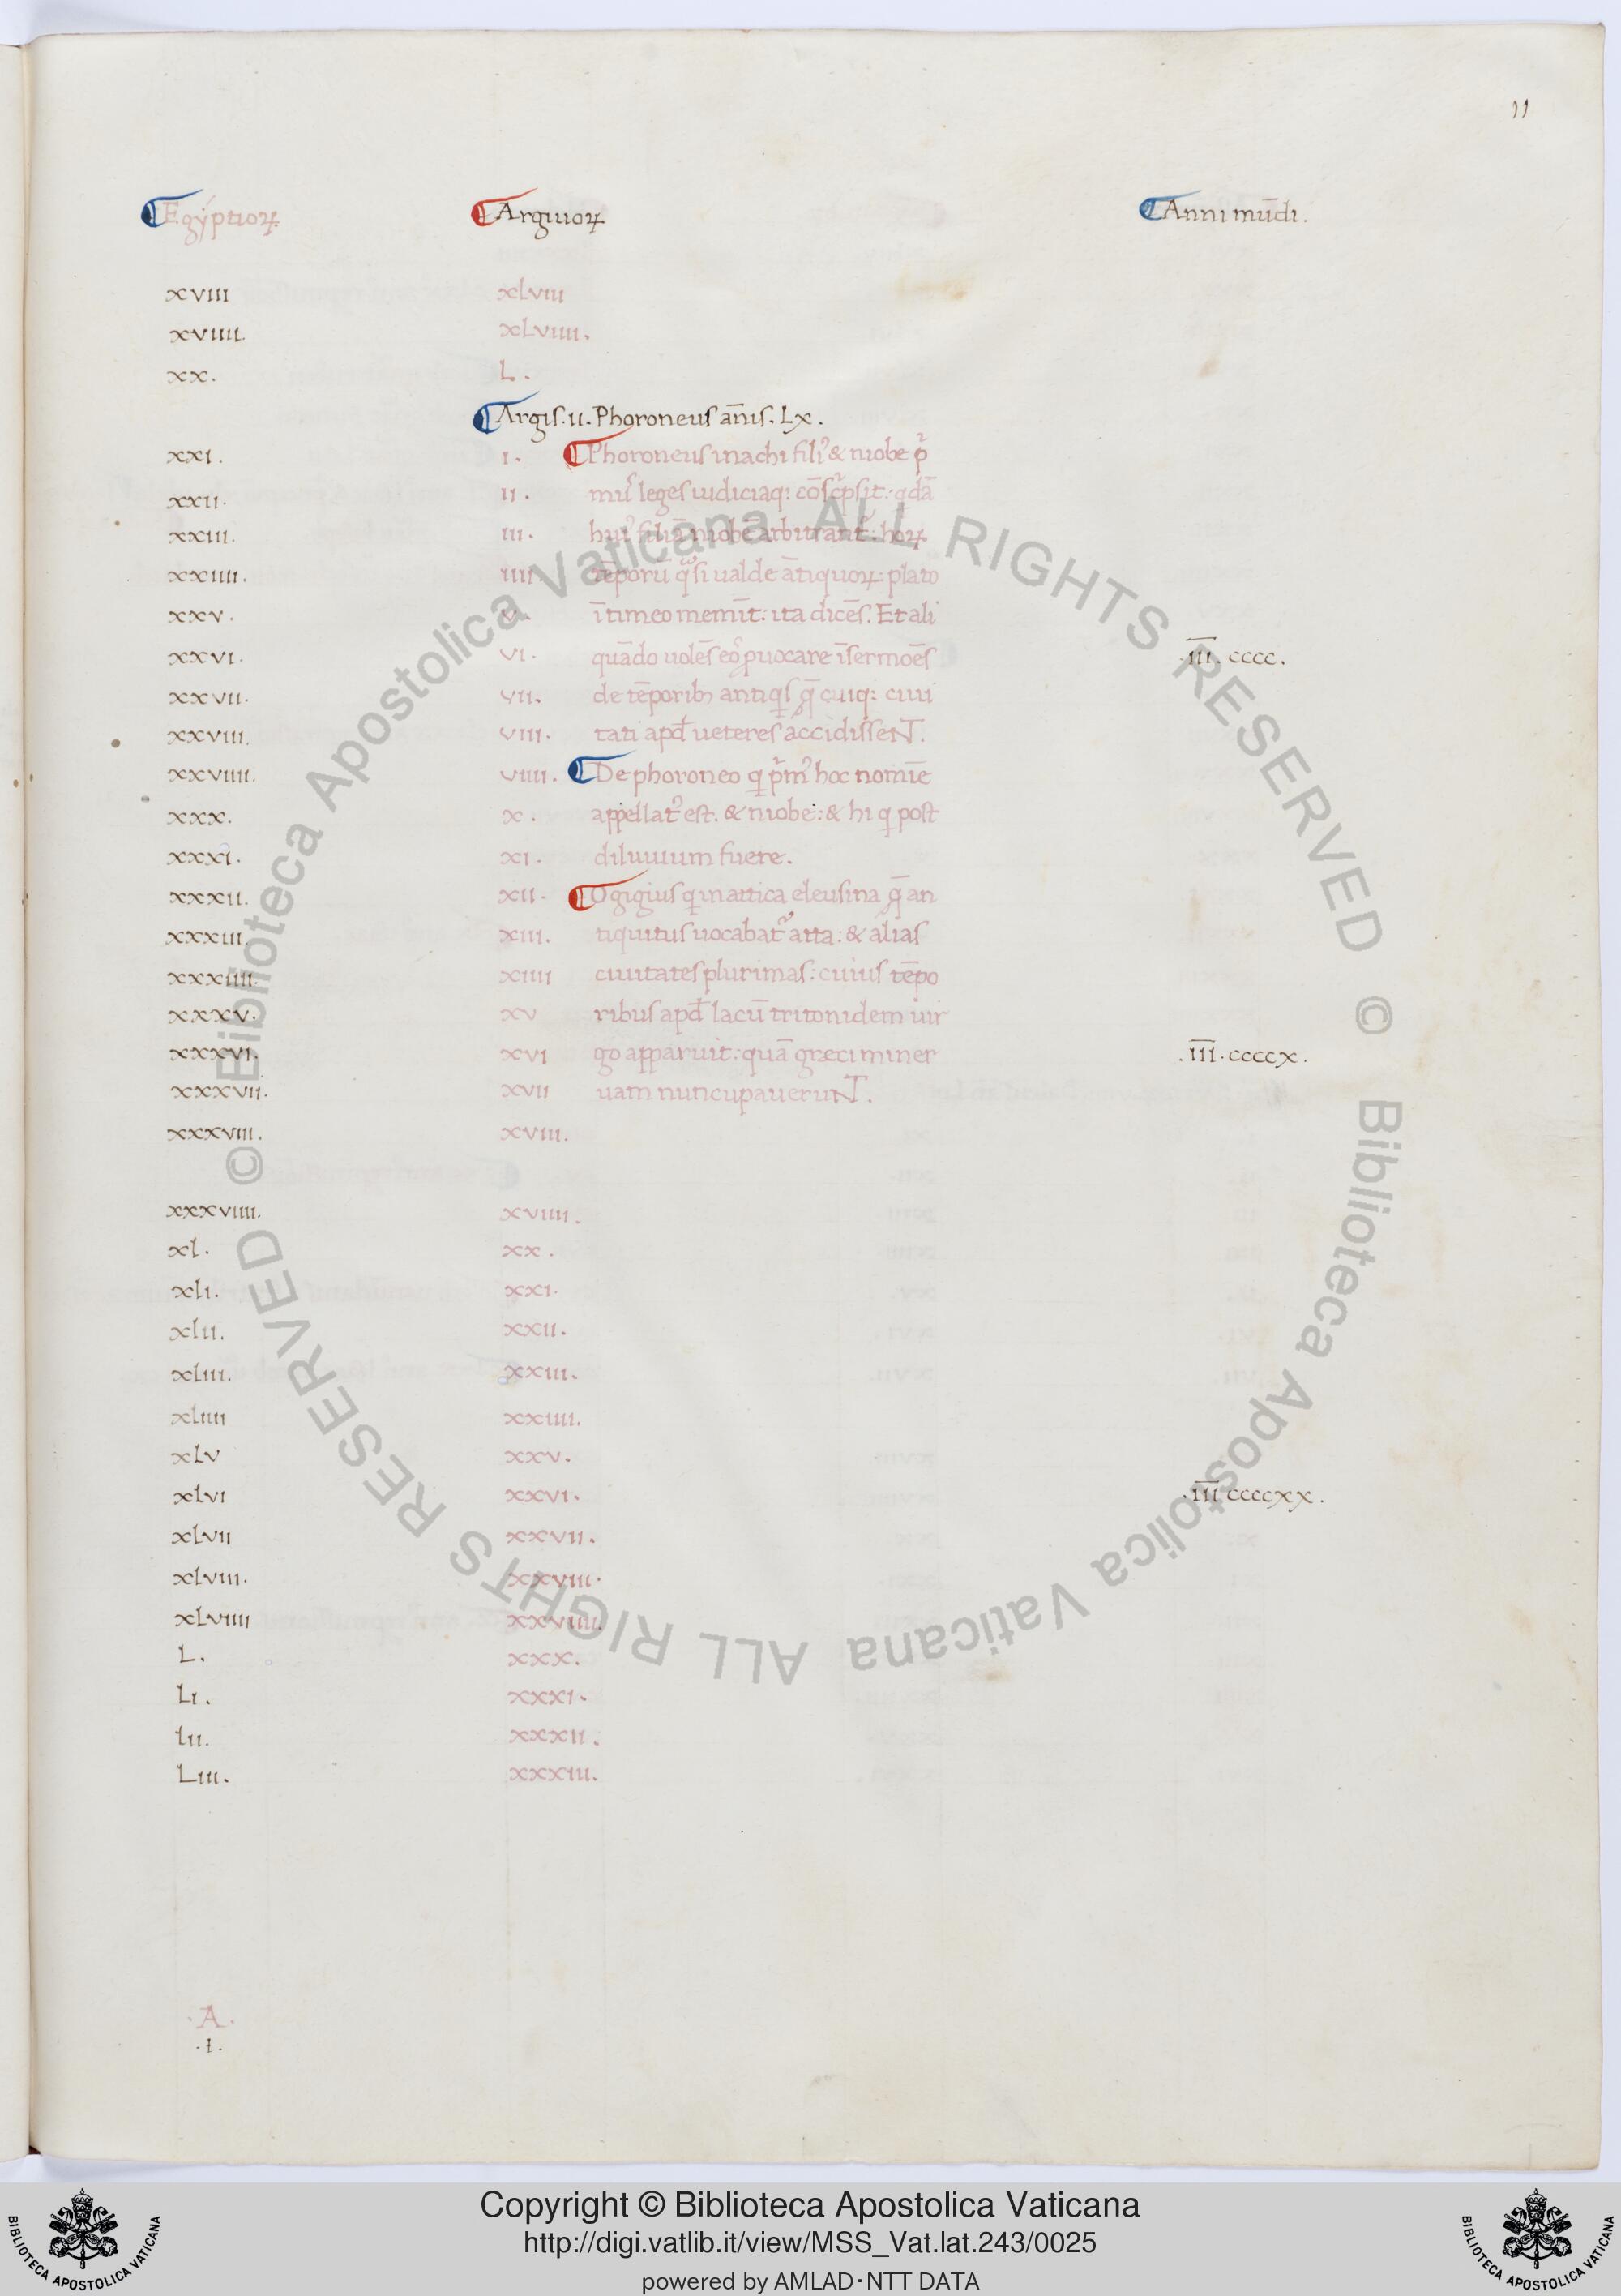 11
Egẏptioꝝ. Argiuoꝝ Anni mūdi.
xviii xlviii
xviiii. xlviiii.
xx. L.
Argis.ii. Phoroneus an̄is. Lx.
xxi. i. Phoroneus inachi fili᷒ & niobe p͛
xxii. ii. mu᷒ leges iudiciaq: cōsc͛psit: qdā
xxiii. iii. hui᷒ filiā niobē arbitrant᷑: hoꝝ
xxiiii. iiii. tēporū q͛si ualde ātiquoꝝ: plato
xxv. v. ītimeo memīt: ita dicēs. Et ali
xxvi. vi. quādo uolēs eo᷒ ꝓuocare īsermōes .ı̅ı̅ı̅. cccc.
xxvii. vii. de tēporibꝫ antiqs q̄ cuiq: ciui
xxviii. viii. tati apđ ueteres accidisseNT.
xxviiii. viiii. De phoroneo q p͛m᷒ hoc nomīe
xxx. x. appellat᷒ est. & niobe: & hi q post
xxxi. xi. diluuium fuere.
xxxii. xii. Ogigius q inattica eleusina q̄ an
xxxiii. xiii. tiquitus uocabat᷑ atta: & alias
xxxiiii. xiiii ciuitates plurimas: cuius tēpo
xxxv. xv ribus apđ lacū tritonidem uir
xxxvi. xvi go apparuit: quā greci miner .ı̅ı̅ı̅. ccccx.
xxxvii. xvii uam nuncupaueruNT.
xxxviii. xviii.
xxxviiii. xviiii.
xl. xx.
xli. xxi.
xlii. xxii.
xliii. xxiii.
xliiii xxiiii.
xLv xxv.
xLvi xxvi. .ı̅ı̅ı̅ ccccxx.
xLvii xxvii.
xLviii. xxviii.
xLviiii xxviiii.
L. xxx.
Li. xxxi.
Lii. xxxii.
Liii. xxxiii.
.A.
.1.
© Biblioteca Apostolica Vaticana ALL RIGHTS RESERVED © Biblioteca Apostolica Vaticana ALL RIGHTS RESERVED
Copyright © Biblioteca Apostolica Vaticana
http://digi.vatlib.it/view/MSS_Vat.lat.243/0025
powered by AMLAD·NTT DATA
BIBLIOTECA APOSTOLICA VATICANA
BIBLIOTECA APOSTOLICA VATICANA